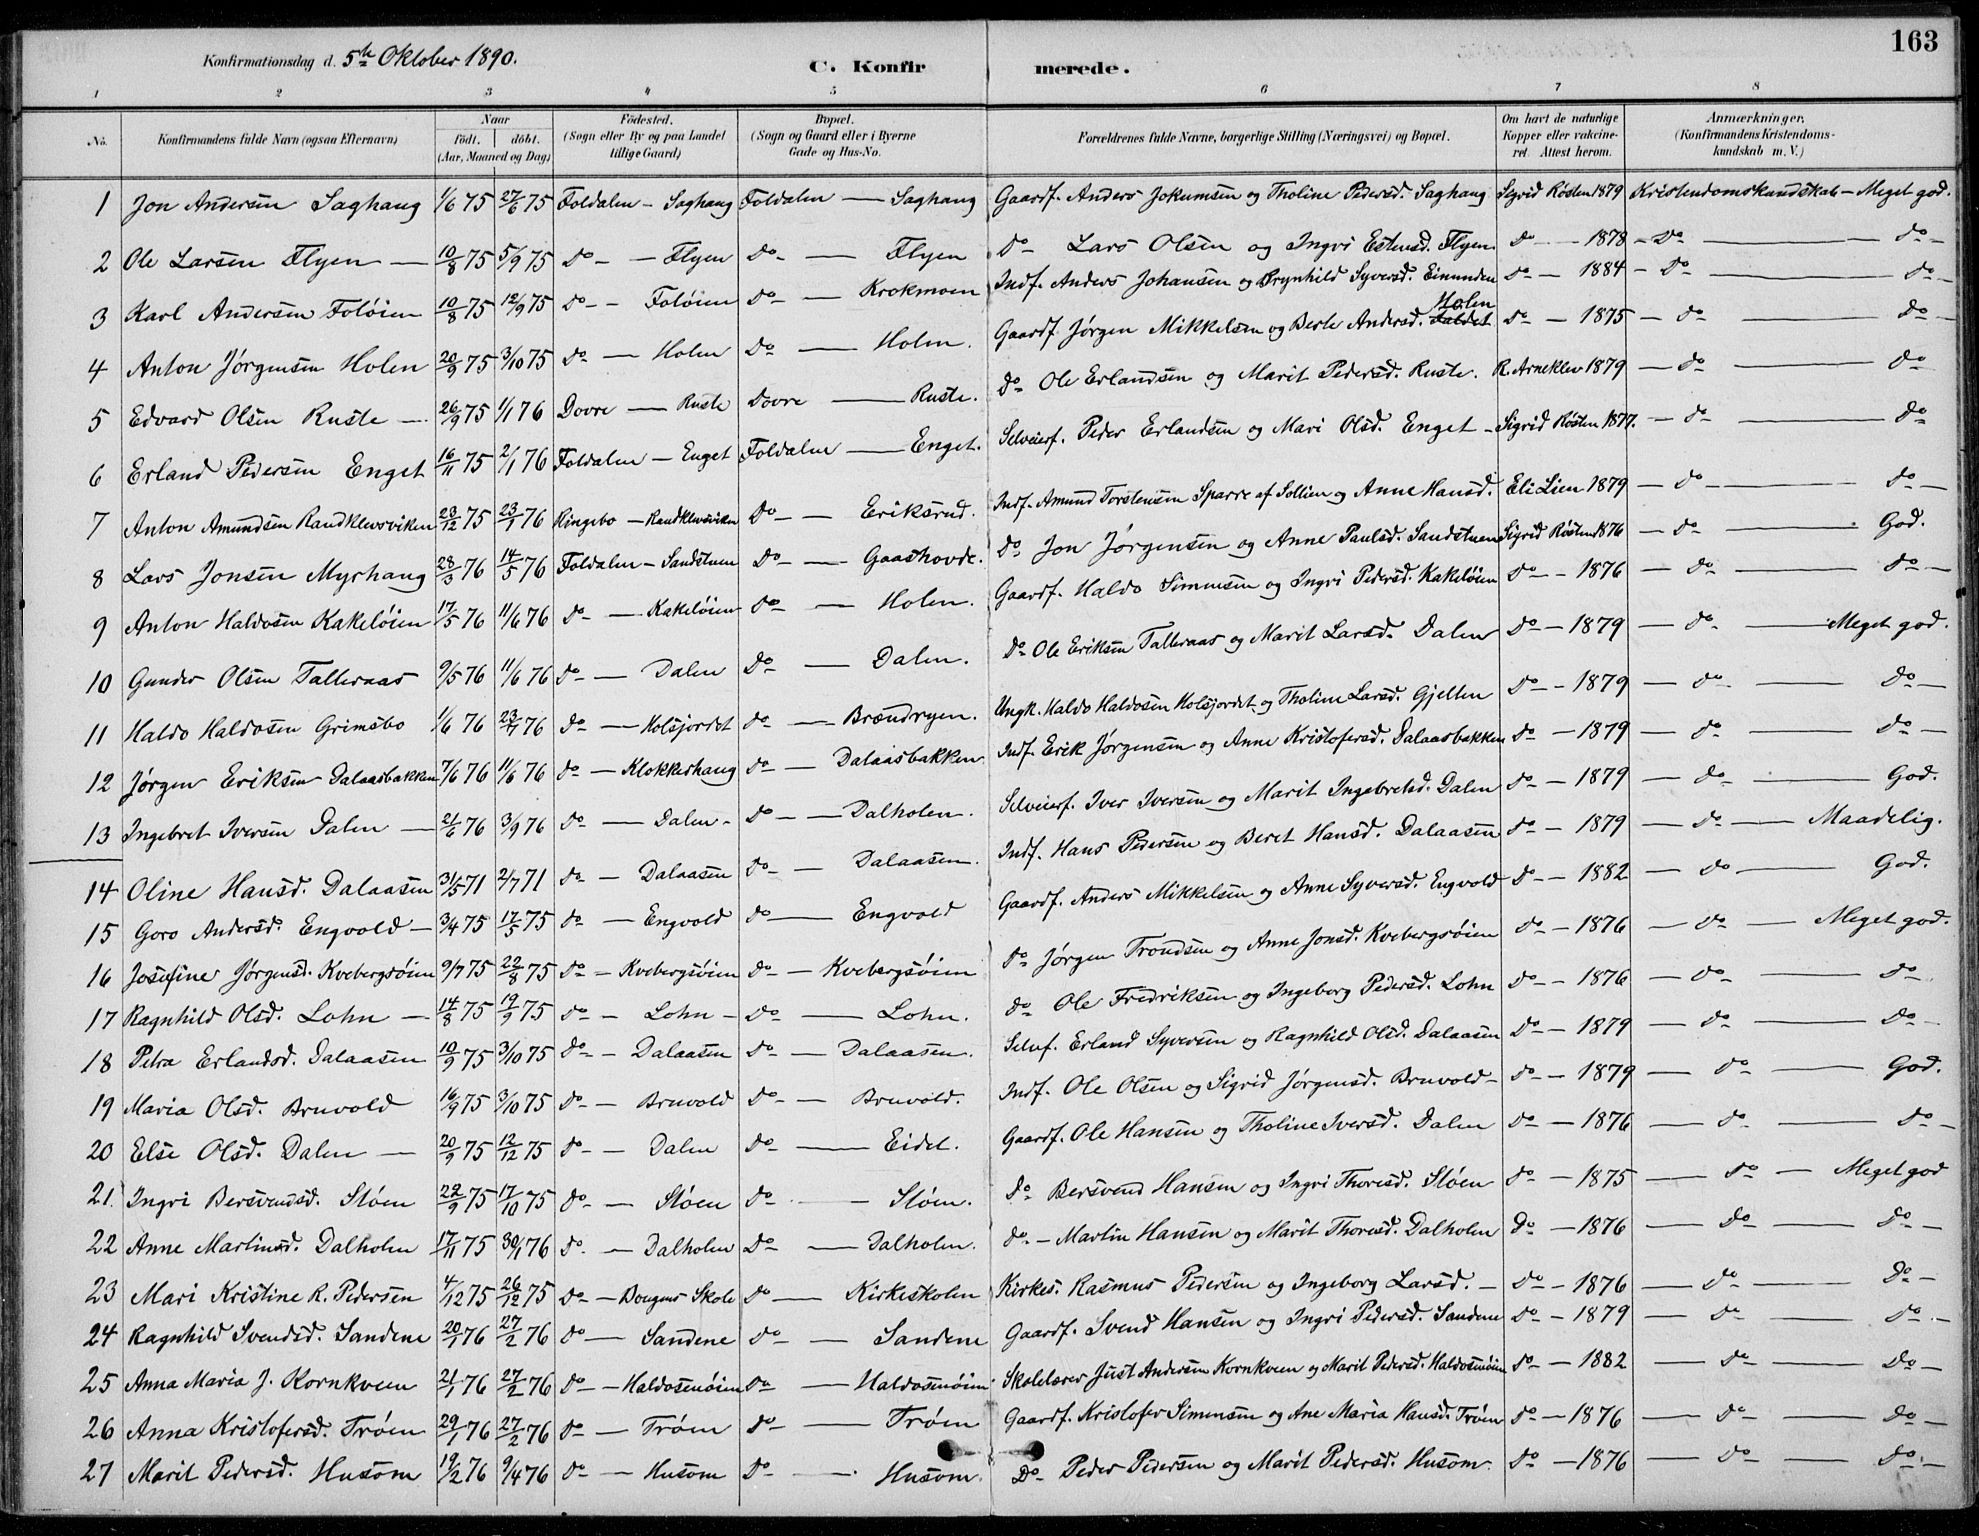 163
Konfirmationsdag d. 5te Oktober 1890.
C. Konfirmerede.
1 2 3 4 5 6 7 8
No. Konfirmandens fulde Navn (ogsaa Efternavn) Naar født. døbt. (Aar, Maaned og Dag) Fødested. (Sogn eller By og paa Landet tillige Gaard) Bopæl. (Sogn og Gaard eller i Byerne Gade og Hus-No. Forældrenes fulde Navne, borgerlige Stilling (Næringsvei) og Bopæl. Om havt de naturlige Kopper eller vakcineret. Attest herom. Anmærkninger. (Konfirmandens Kristendomskundskab m. V.)
1 Jon Andersen Saghaug 1/6 75 27/6 75 Foldalen - Saghaug Foldalen - Saghaug Gaardf. Anders Jokumsen og Tholine Pedersd. Saghaug Sigrid Røsten 1879 Kristendomskundskab - Meget god.
2 Ole Larsen Flyen - 10/8 75 5/9 75 do - Flyen do - Flyen do Lars Olsen og Ingri Estensd. Flyen do - 1878 - do - do -
3 Karl Andersen Foløien 10/8 75 12/9 75 do - Foløien do - Krokmoen Indf. Anders Johansen og Brynhild Syversd. Einunden do - 1884 - do - do -
4 Anton Jørgensen Holen 20/9 75 3/10 75 do - Holen do - Holen. Gaardf. Jørgen Mikkelsen og Berte Andersd. Holen do - 1875 - do - do -
5 Edvard Olsen Ruste - 26/9 75 1/1 76 Dovre - Ruste Dovre - Ruste. do Ole Erlandsen og Marit Pedersd. Ruste. R. Arneklev 1879 - do - do
6 Erland Pedersen Enget 16/11 75 2/1 76 Foldalen - Enget Foldalen - Enget. Selveierf. Peder Erlandsen og Mari Olsd. Enget - Sigrid Røsten 1877. - do - do
7 Anton Amundsen Randklevsviken 28/12 75 23/1 76 Ringebo - Randklevsviken do - Eriksrud. Indf. Amund Torstensen Sparre af Sollien og Anne Hansd. Eli Lien 1879 - do - do -
8 Lars Jonsen Myrhaug 28/3 76 14/5 76 Foldalen - Sandstuen do - Gaashovde. do Jon Jørgensen og Anne Paulsd. Sandstuen Sigrid Røsten 1876 - do - God.
9 Anton Haldosen Kakeløien 17/5 76 11/6 76 do - Kakeløien do - Holen. Gaardf. Haldo Simensen og Ingri Pedersd. Kakeløien do - 1876 - do - do -
10 Gunder Olsen Talleraas 9/5 76 11/6 76 do - Dalen do - Dalen. do Ole Eriksen Talleraas og Marit Larsd. Dalen do - 1879 - do - Meget god.
11 Haldo Haldosen Grimsbo 1/6 76 23/7 76 do - Holsjordet do - Brændryen. Ungk. Haldo Haldosen Holsjordet og Tholine Larsd. Gjelten do - 1879 - do - do -
12 Jørgen Eriksen Dalaasbakken 7/6 76 11/6 76 do - Klokkerhaug do - Dalaasbakken Indf. Erik Jørgensen og Anne Kristofersd. Dalaasbakken do - 1879 - do - do -
13 Ingebret Iversen Dalen - 21/6 76 3/9 76 do - Dalen - do - Dalholen. Selveierf. Iver Iversen og Marit Ingebretsd. Dalen do - 1879 - do - God.
14 Oline Hansd. Dalaasen 31/5 71 2/7 71 do - Dalaasen do - Dalaasen. Indf. Hans Pedersen og Beret Hansd. Dalaasen do - 1879 - do - Maadelig.
15 Goro Andersd. Engvold - 3/4 75 17/5 75 do - Engvold do - Engvold Gaardf. Anders Mikkelsen og Anne Syversd. Engvold do - 1882 - do - God.
16 Josefine Jørgensd. Kvebergsøien 9/7 75 22/8 75 do - Kvebergsøien do - Kvebergsøien do Jørgen Trondsen og Anne Jonsd. Kvebergsøien do - 1876 - do - Meget god.
17 Ragnhild Olsd. Lohn - 14/8 75 19/9 75 do - Lohn - do - Lohn. do Ole Fredriksen og Ingeborg Pedersd. Lohn do - 1876 - do - do
18 Petra Erlandsd. Dalaasen 10/9 75 3/10 75 do - Dalaasen do - Dalaasen. Selvf. Erland Syversen og Ragnhild Olsd. Dalaasen do - 1879 - do - do -
19 Maria Olsd. Bruvold 16/9 75 3/10 75 do - Bruvold do - Bruvold. Indf. Ole Olsen og Sigrid Jørgensd. Bruvold - do - 1879 - do - God.
20 Else Olsd. Dalen - 20/9 75 12/12 75 do - Dalen do - Eidet. Gaardf. Ole Hansen og Tholine Iversd. Dalen do - 1876 - do - do -
21. Ingri Bersvendsd. Støen 22/9 75 17/10 75 do - Støen do - Støen. do Bersvend Hansen og Ingri Thoresd. Støen do - 1875 - do - Meget god
22 Anne Martinsd. Dalholen 17/11 75 30/1 76 do - Dalholen do - Dalholen. do - Martin Hansen og Marit Thoresd. Dalholen do - 1876 - do - do -
23 Mari Kristine R. Pedersen 4/12 75 26/12 75 do - Bougens Skole do - Kirkeskolen Kirkes. Rasmus Pedersen og Ingeborg Larsd. - do - 1876 - do - do -
24 Ragnhild Svendsd. Sandene 20/1 76 27/2 76 do - Sandene do - Sandene Gaardf. Svend Hansen og Ingri Pedersd. Sandene do - 1879 - do - do -
25 Anna Maria J. Kornkveen 21/1 76 27/2 76 do - Haldosenøien do - Haldosenøien Skolelærer Just Andersen Kornkveen og Marit Pedersd. Haldosenøien do - 1882 - do - do -
26 Anna Kristofersd. Trøen 29/1 76 27/2 76 do - Trøen do - Trøen Gaardf. Kristofer Simensen og Ane Maria Hansd. Trøen do - 1876 - do - do -
27 Marit Pedersd. Husom 19/2 76 9/4 76 do - Husom do - Husom. do - Peder Pedersen og Marit Pedersd. Husom. do - 1876 - do - do -